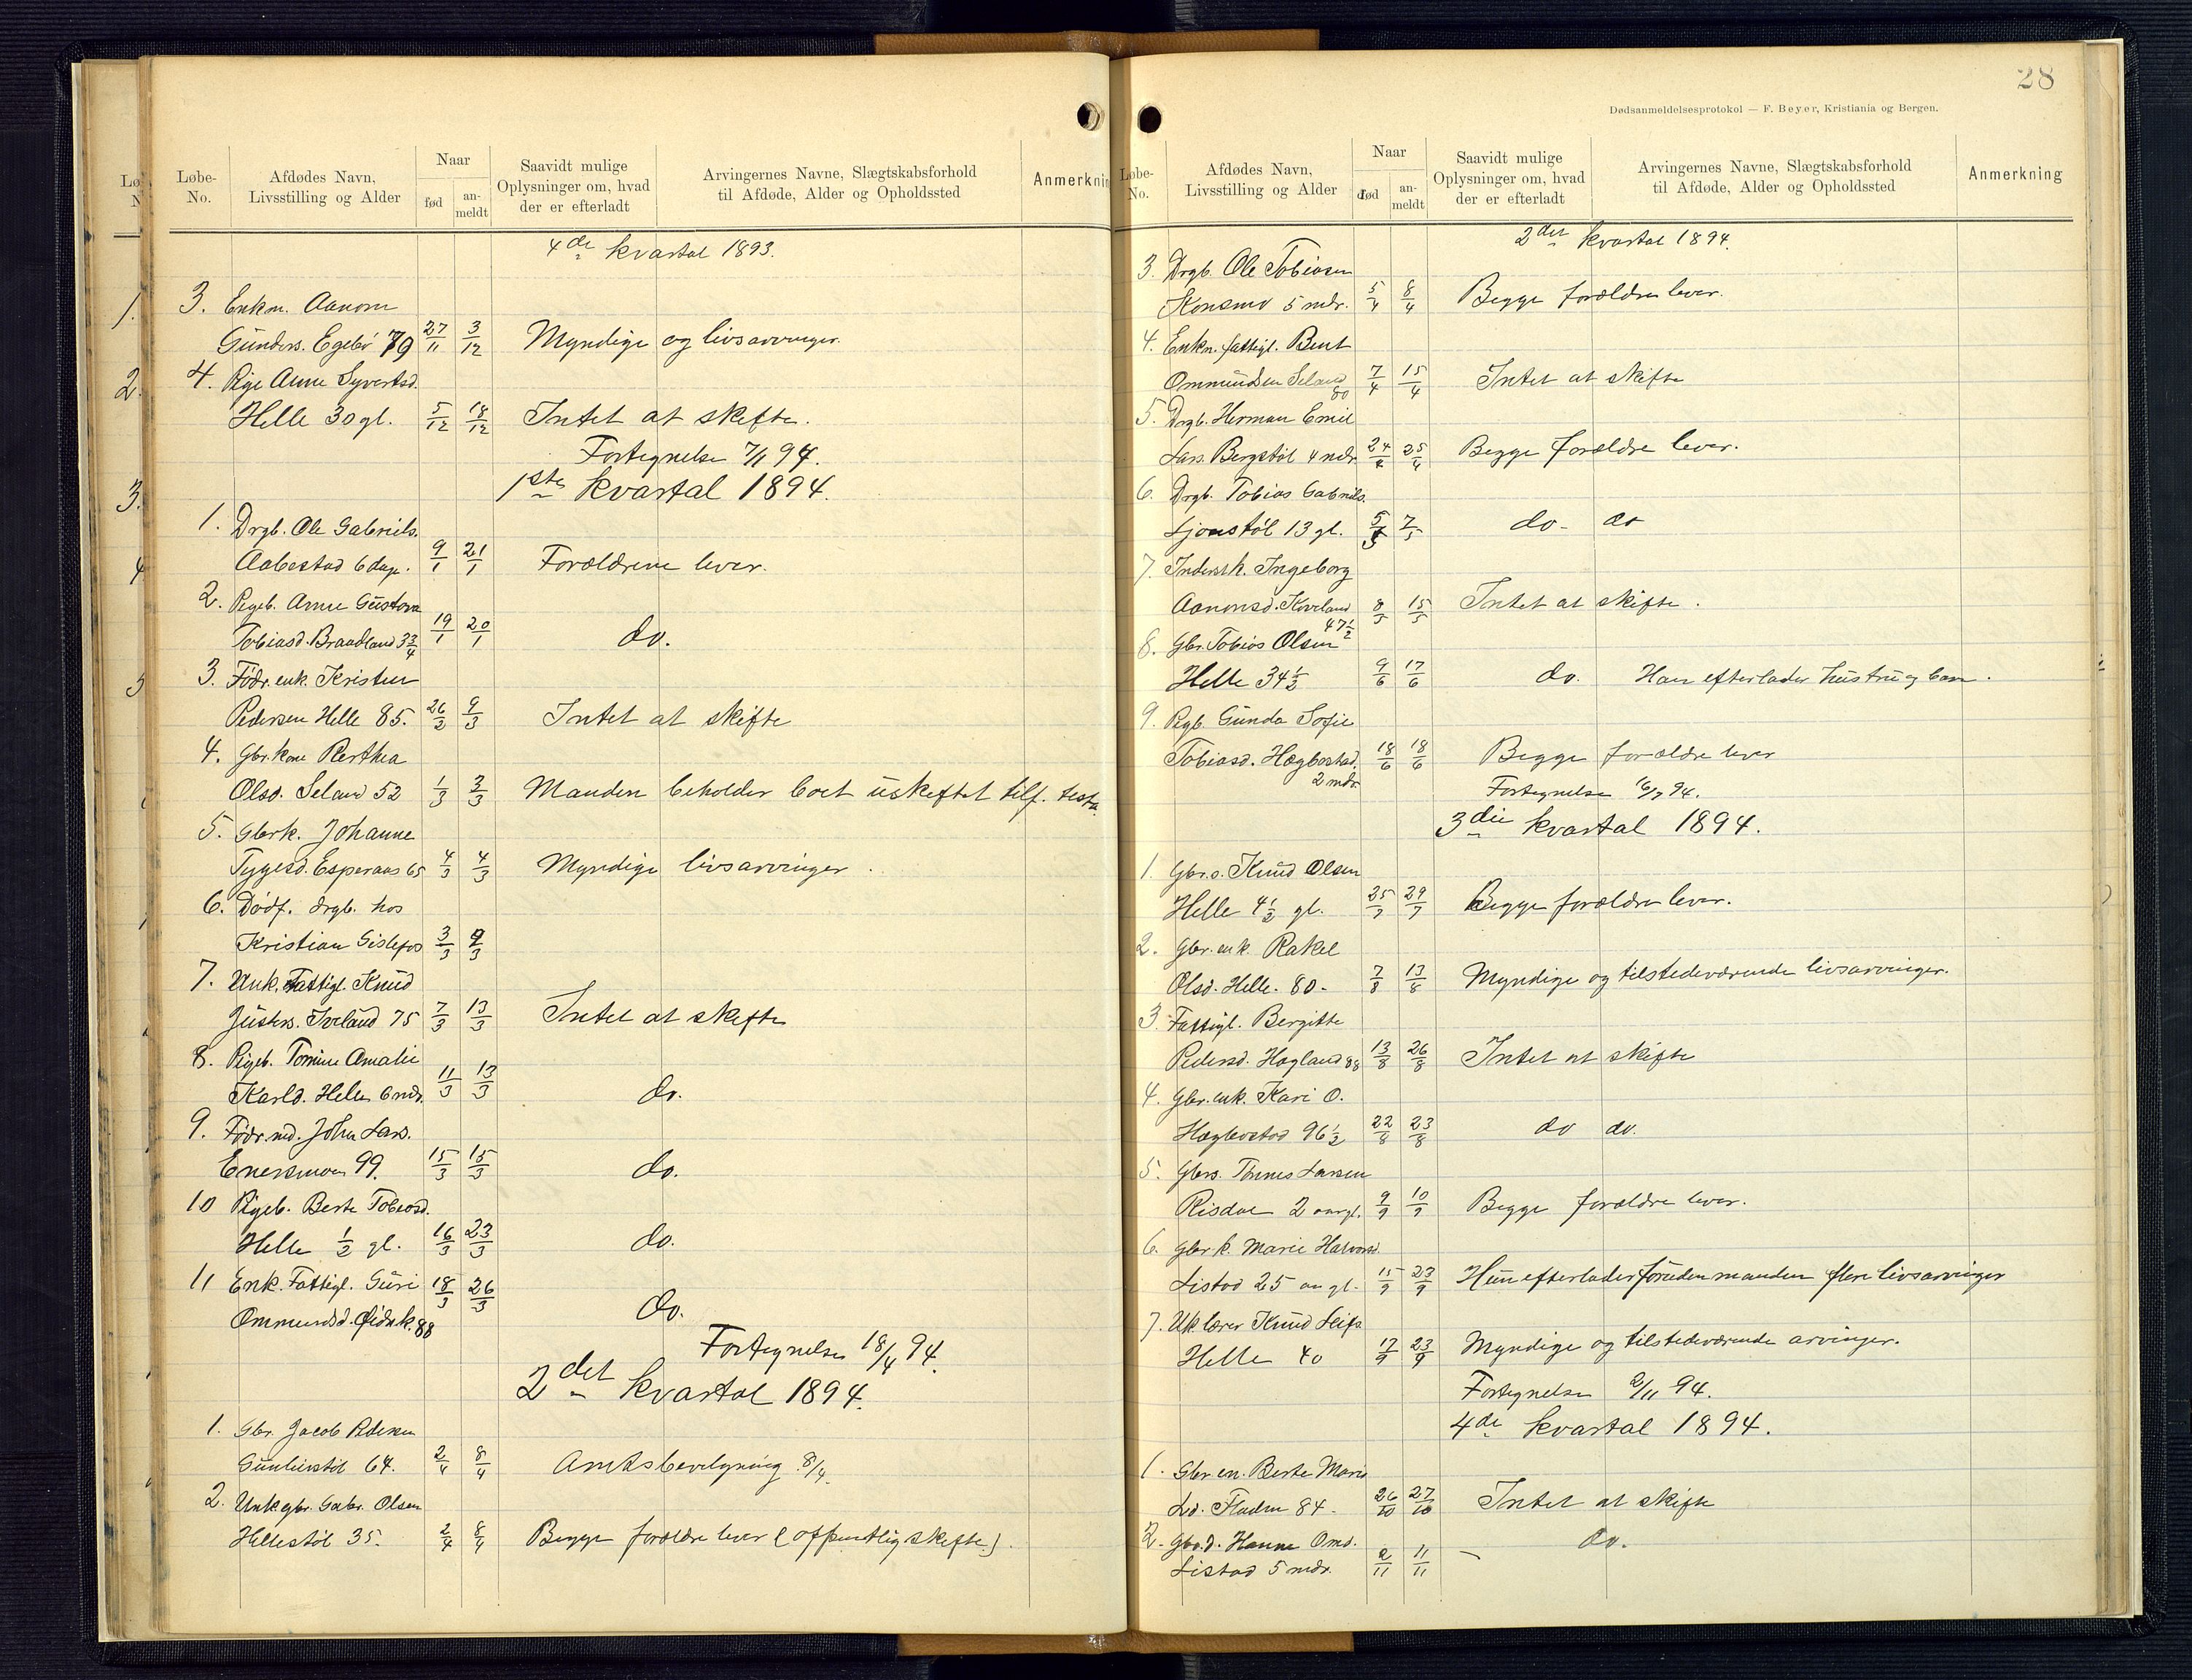 Løbe-
No.
Afdødes Navn,
Livsstilling og Alder
Naar
fød
an-
meldt
Saavidt mulige
Oplysninger om, hvad
der er efterladt
Arvingernes Navne, Slægtskabsforhold
til Afdøde, Alder og Opholdssted
Anmerknin
4de kvartal 1893.
3. Enkm. Aanon
Gunders. Egebø 79 27/11 3/12 Myndige og livsarvinger.
4. Pige Anne Syvertsd.
Helle 30 gl. 5/12 18/12 Intet at skifte.
Fortegnelse 7/1 94.
1ste kvartal 1894.
1. Drgb. Ole Gabriels.
Aabestad 6 dage. 9/1 21/1 Forældrene lever.
2. Pigeb. Anne Gustava
Tobiasd. Braadland 3 3/4 19/1 20/1 do.
3. Födr. enk. Kristen
Pedersen Helle 85. 26/2 9/3 Intet at skifte
4. Gbr. kone Berthea
Olsd. Seland 52 1/3 3/3 Manden beholder boet uskiftet tilf. testa.
5. Gbrk. Johanne
Tygesd. Esperaas 65 4/3 4/3 Myndige livsarvinger.
6. Dødf. drgb. hos
Kristian Gislefos 3/3 9/3
7. Unk. Fattigl. Knud
Justers. Iveland 75 7/3 13/3 Intet at skifte
8. Pigeb. Tomine Amalie
Karld. Helle 6 mdr. 11/3 13/3 do.
9. Födr. md. John Lars.
Enersmoen 99. 15/3 15/3 do.
10 Pigeb. Berte Tobiasd.
Helle 1/2 gl. 16/3 23/3 do.
11 Enk. Fattigl. Guri 18/3 26/3
Ommundsd. 88 do.
Fortegnelse 18/4 94.
2det kvartal 1894.
1. Gbr. Jacob Pedersen
64. 2/4 8/4 Amtsbevilgning 8/4.
2. Unkgbr. Gabr. Olsen
Hillestöl 35. 2/4 8/4 Begge forældre lever (offentlig skifte).
28
Dødsanmeldelsesprotokol — F. Beyer, Kristiania og Bergen.
Løbe-
No.
Afdødes Navn,
Livsstilling og Alder
Naar
død
an-
meldt
Saavidt mulige
Oplysninger om, hvad
der er efterladt
Arvingernes Navne, Slægtskabsforhold
til Afdøde, Alder og Opholdssted
Anmerkning
2det kvartal 1894.
3. Drgb. Ole Tobiasen
Konsmo 5 mdr. 5/4 8/4 Begge forældre lever.
4. Enkn. fattigl. Bent
Ommundsen Seland 80 7/4 15/4 Intet at skifte
5. Drgb. Herman Emil
Lars. Bergstöl 4 mdr. 24/4 25/4 Begge forældre lever.
6. Drgb. Tobias Gabriels.
Ljonstöl 13 gl. 5/5 7/5 do - do
7. Inderstk. Ingeborg
Aanonsd. Koveland 47 1/2 8/5 15/5 Intet at skifte.
8. Gbr. Tobias Olsen
Helle 34 1/2 9/6 17/6 do. Han efterlader hustru og barn.
9. Pigb. Gunda Sofie
Tobiasd. Hægbostad. 2 mdr. 18/6 18/6 Begge forældre lever
Fortegnelse 16/7 94.
3die kvartal 1894.
1. Gbr. s. Knud Olsen
Helle 4 1/2 gl. 25/7 29/7 Begge forældre lever.
2. Gbr. enk. Rakel
Olsd. Helle. 80. 7/8 13/8 Myndige og tilstedeværende livsarvinger.
3. Fattigl. Bergitte
Pedersd. Hagland 88 13/8 26/8 Intet at skifte
4. Gbr. enk. Kari O.
Hægbostad 96 1/2 22/8 23/8 do do.
5. Gbrs. Tönnes Larsen
Risdal 2 aar gl. 9/9 10/9 Begge forældre lever.
6. Gbr k. Marie Halvorsd.
Listad 25 aar gl. 15/9 23/9 Hun efterlader foruden manden flere livsarvinger
7. Uk. lærer Knud Leifs
Helle 40 17/9 23/9 Myndige og tilstedeværende arvinger.
Fortegnelse 2/11 94.
4de kvartal 1894.
1. Gbr en. Berte Marie
Ld. Fladen 84. 26/10 27/10 Intet at skifte
2. Gbr. d. Hanne Omd.
Listad 5 mdr. 2/11 11/11 — do.